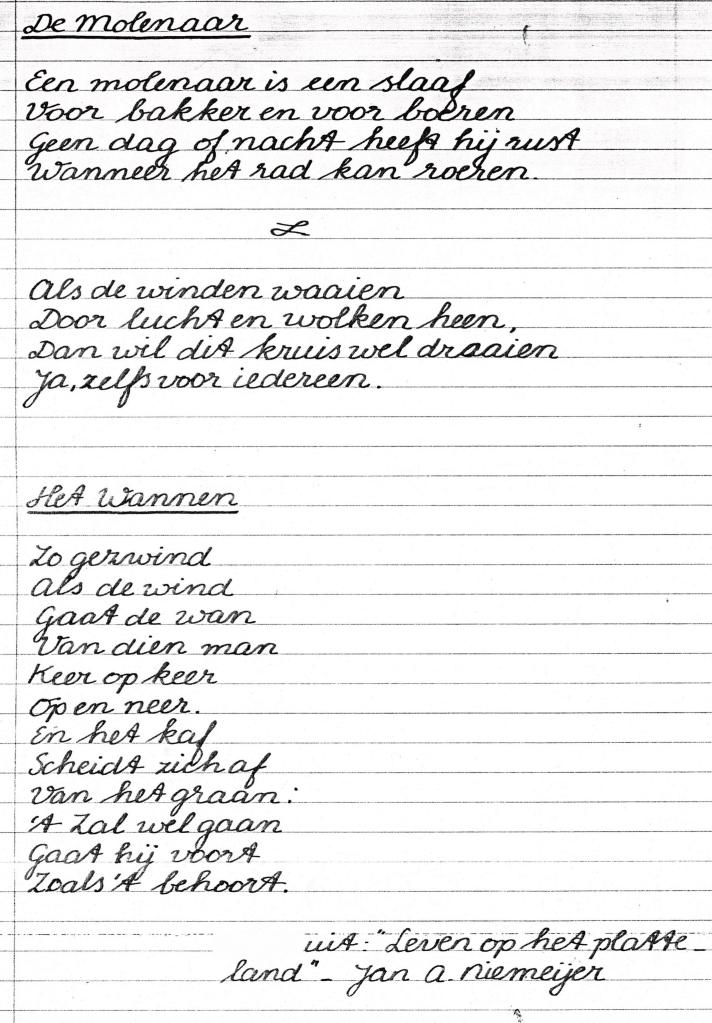 De Molenaar
Een molenaar is een slaaf
Voor bakker en voor boeren
Geen dag of nacht heeft hij rust
Wanneer het rad kan roeren.
Als de winden waaien
Door lucht en wolken heen,
Dan wil dit kruis wel draaien
Ja, zelfs voor iedereen.
Het Wannen
Zo gezwind
Als de wind
Gaat de wan
Van dien man
Keer op keer
Op en neer.
En het kaf
Scheidt zich af
Van het graan:
't Zal wel gaan
Gaat hij voort
Zoals 't behoort.
uit: "Leven op het platte-
land" - Jan A. Niemeijer